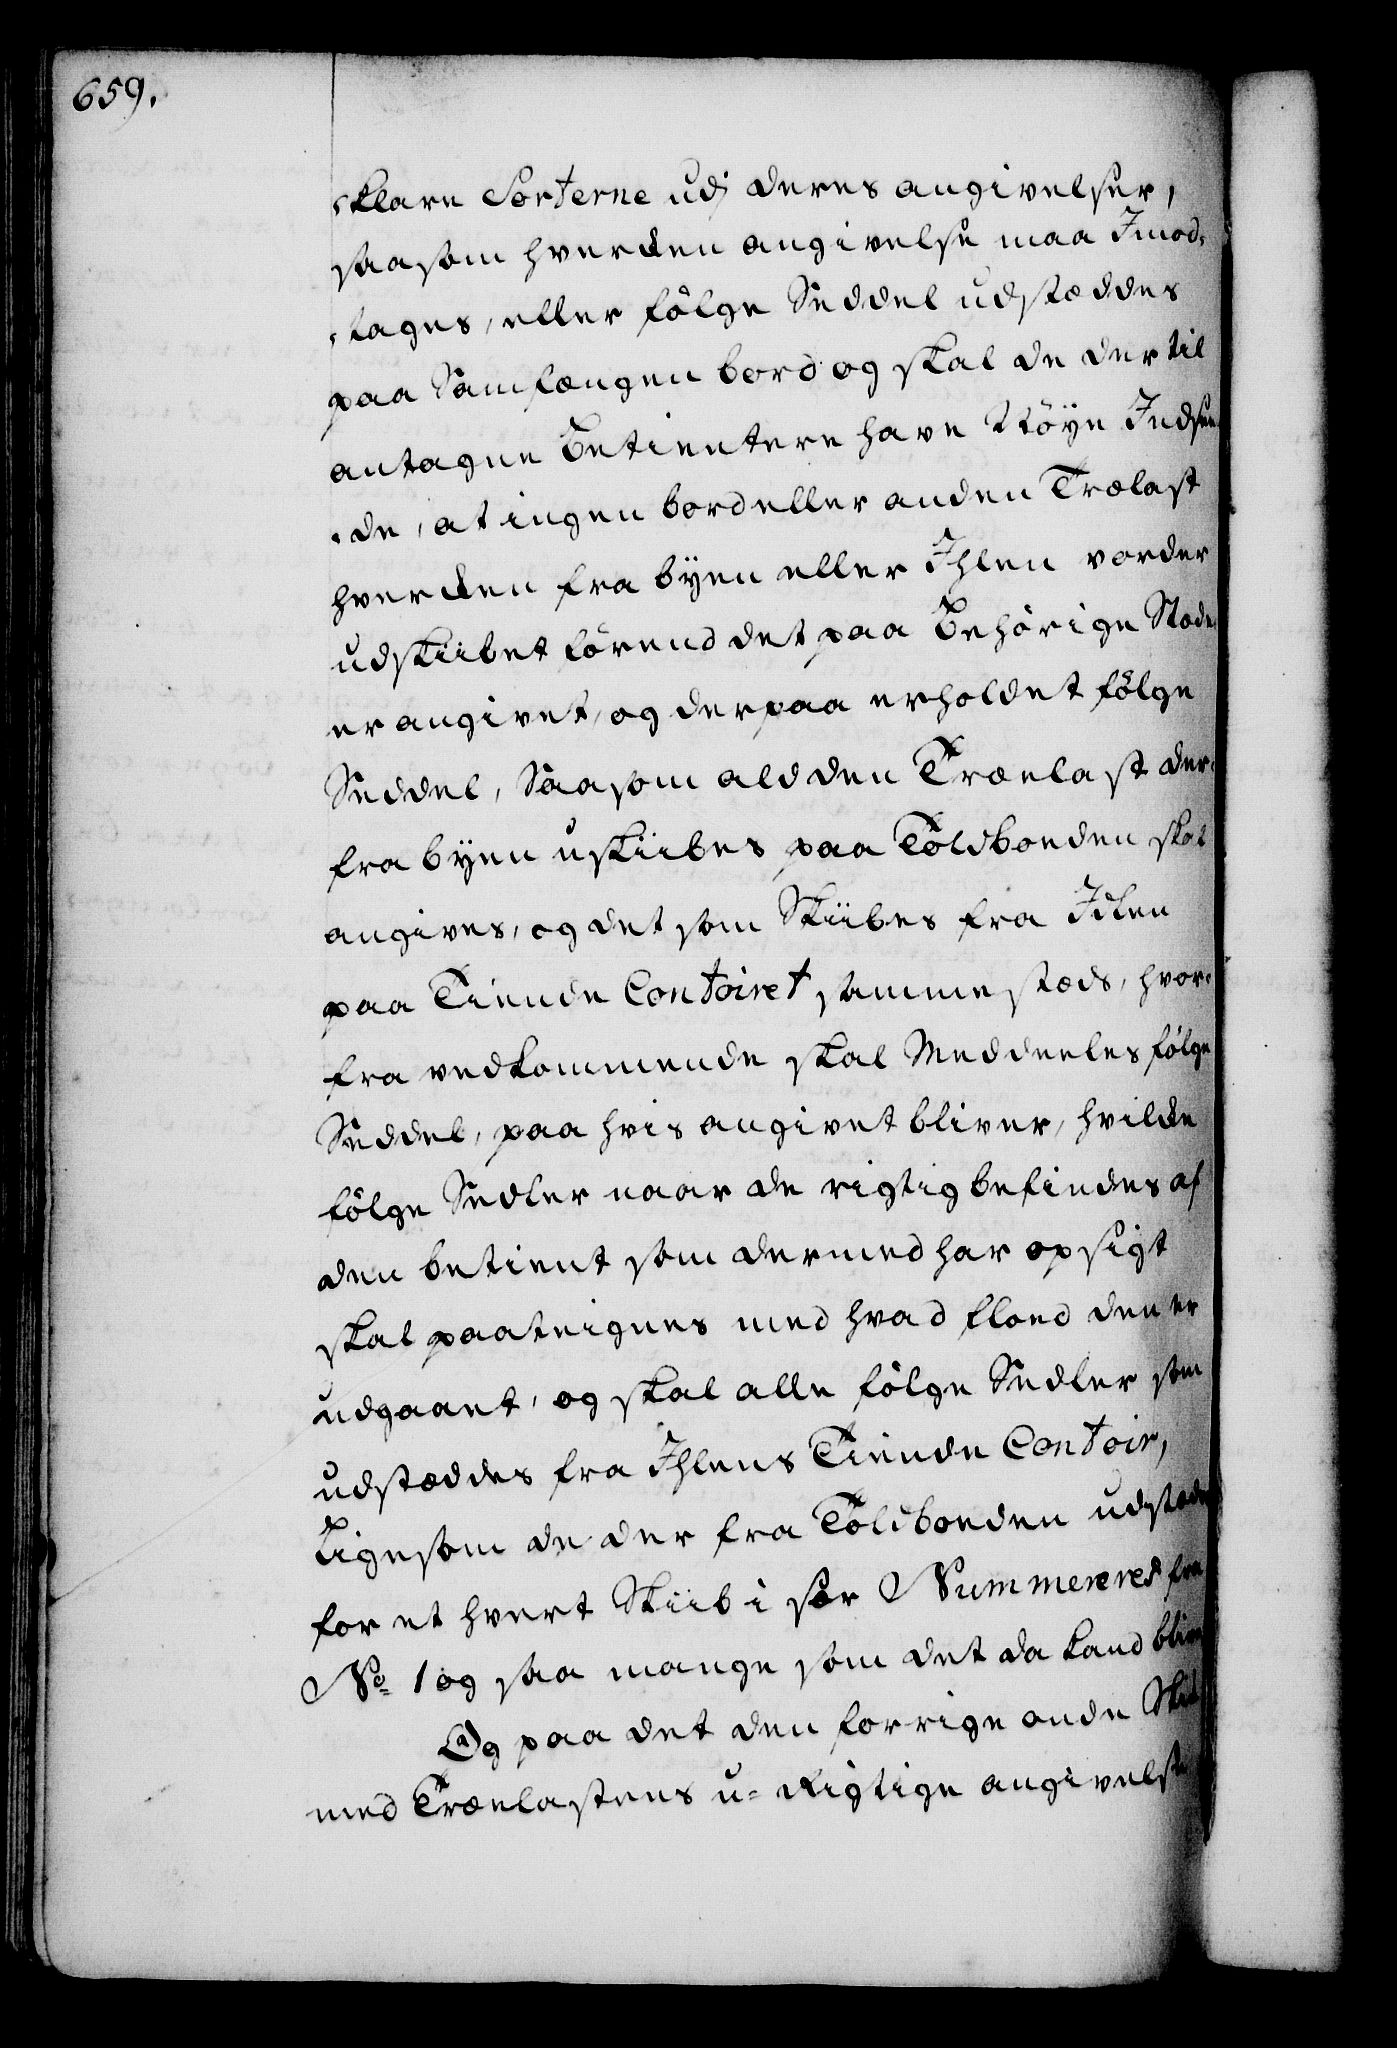 659.
klare Sorterne udj deres angivelser,
saasom hverken angivelse maa Jmod-
tages, eller fölge Seddel udstæddes
paa Samfængen bord og skal de dertil
antagne Betientere have Nöye Indseen-
de, at ingen bord eller anden Trælast
hverken fra byen eller Ihlen vorder
udskiibet förend det paa Behörige Stæde
er angivet, og derpaa erholdet fölge
Seddel, Saasom ald den Træelast der
fra byen uskiibes paa Toldboeden skal
angives, og det som Skiibes fra Ihlen
paa Tiende Contoiret sammestæds, hvor-
fra vedkommende skal Meddeeles fölge
Seddel, paa hvis angivet bliver, hvilke
fölge Sedler naar de rigtig befindes af
den betient som dermed har opsigt
skal paateignes med hvad floed den er
udgaaet, og skal alle fölge Sedler som
udstæddes fra Ihlens Tiende Contoir,
Ligesom de der fra Toldboeden udstæde
for et hvert Skiib i sær Nummereres fra
No. 1 og saa mange som det da kand blive
Og paa det den forrige onde Skik
med Træelastens u-Rigtige angivelse